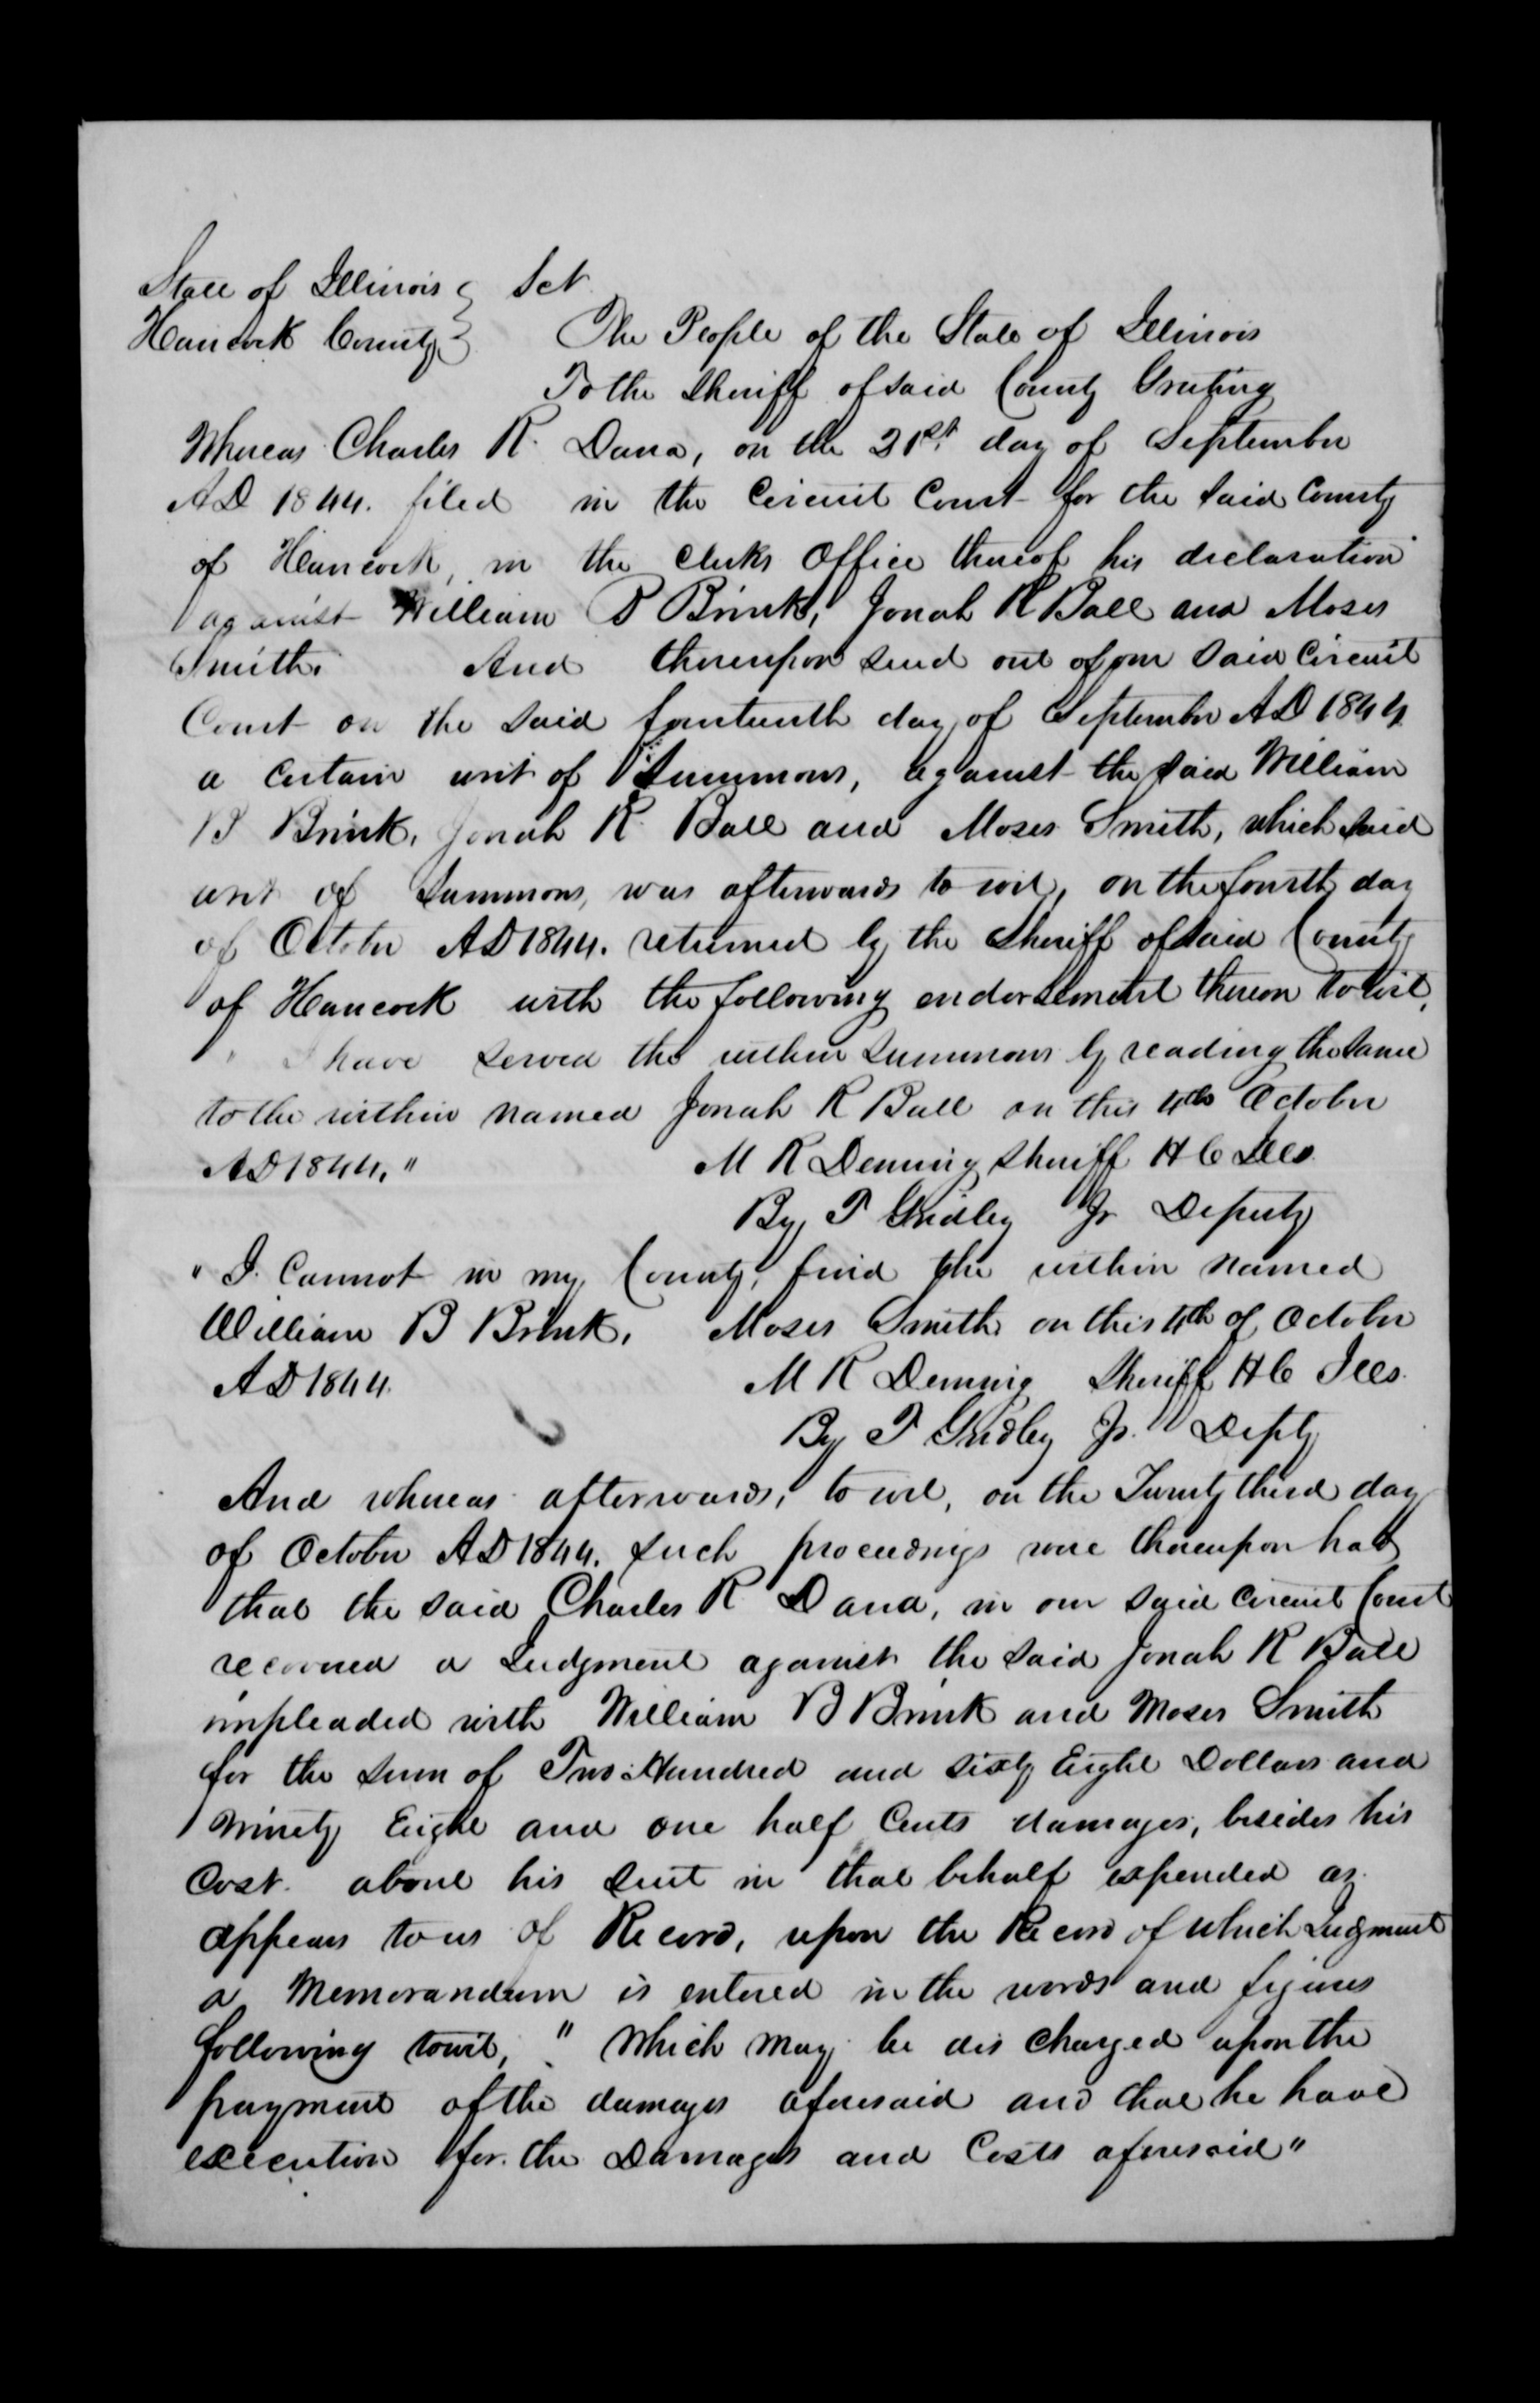 State of Illinois } Sct
Hancock County } The People of the State of Illinois
To the Sheriff of said County Greeting
Whereas Charles R. Dana, on the 21st day of September
AD 1844. filed in the Circuit Court for the said County
of Hancock, in the Clerks Office thereof his declaration
against William B Brink, Jonah R Ball and Moses
Smith. And thereupon sued out of our said Circuit
Court on the said fourteenth day of September AD 1844
a certain writ of Summons, against the said William
B Brink, Jonah R. Ball and Moses Smith, which said
writ of Summons, was afterwards to wit, on the fourth day
of October AD 1844. returned by the Sheriff of said County
of Hancock with the following endorsement thereon towit,
" I have served the within summons by reading the same
to the within named Jonah R Ball on this 4th October
AD 1844." M R Deming Sheriff H C Ills
By T Gridley Jr Deputy
" I. Cannot in my County, find the within named
William B Brink, Moses Smith on this 4th of October
AD 1844. M R Deming Sheriff H C Ills.
By T Gridley Jr. Depty
And whereas afterwards, to wit, on the Twenty third day
of October AD 1844. such proceedings were thereupon had
that the said Charles R Dana, in our said Circuit Court
recovered a Judgment against the said Jonah R Ball
impleaded with William B Brink and Moses Smith
for the sum of Two Hundred and sixty Eight Dollars and
Ninety Eight and one half Cents damages, besides his
Cost. about his suit in that behalf expended as
appears to us of Record, upon the Record of which Judgment
a Memorandum is entered in the words and figures
following towit, " Which may be dis charged upon the
payment of the damages aforesaid and that he have
execution for the Damages and Costs aforesaid"